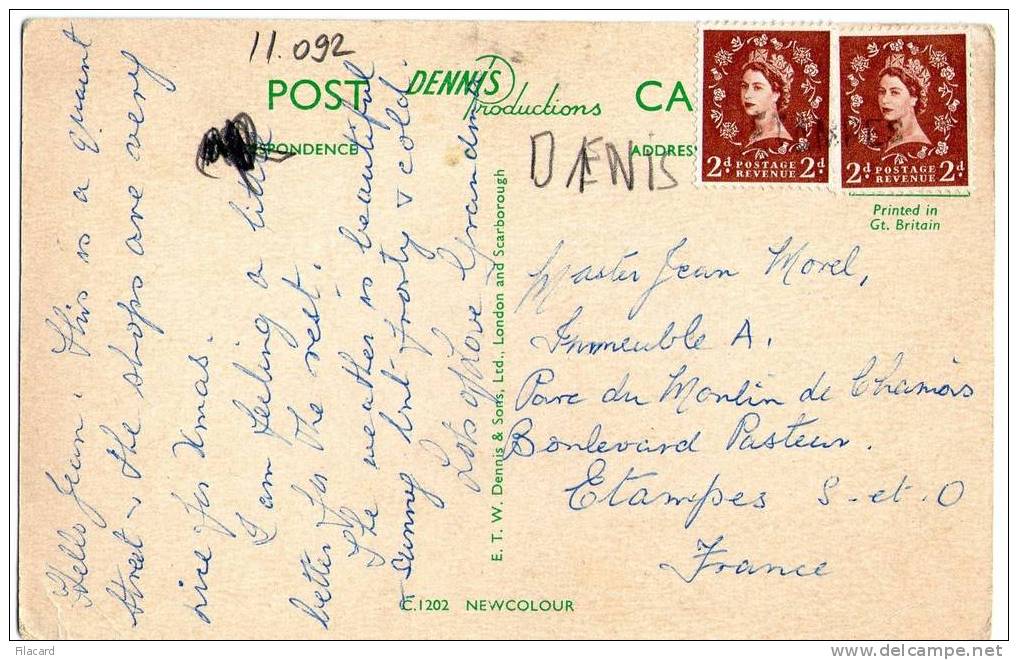 11.092
POST CA
DENNIS
Productions
PONDENCE
ADDRES
DENIS
2d POSTAGE REVENUE 2d
2d POSTAGE REVENUE 2d
Printed in
Gt. Britain
Hello Jean. This is a quaint
street, the shops are very
nice for Xmas.
I am feeling a little
better for the rest.
The weather is beautiful
sunny but frosty & cold.
Lots of love Grandma
E. T. W. Dennis & Sons, Ltd., London and Scarborough
Master Jean Morel,
Immeuble A.
Parc du Moulin de Chamois
Boulevard Pasteur.
Etampes S-et-O
France
C.1202 NEWCOLOUR
Filacard
delcampe.net